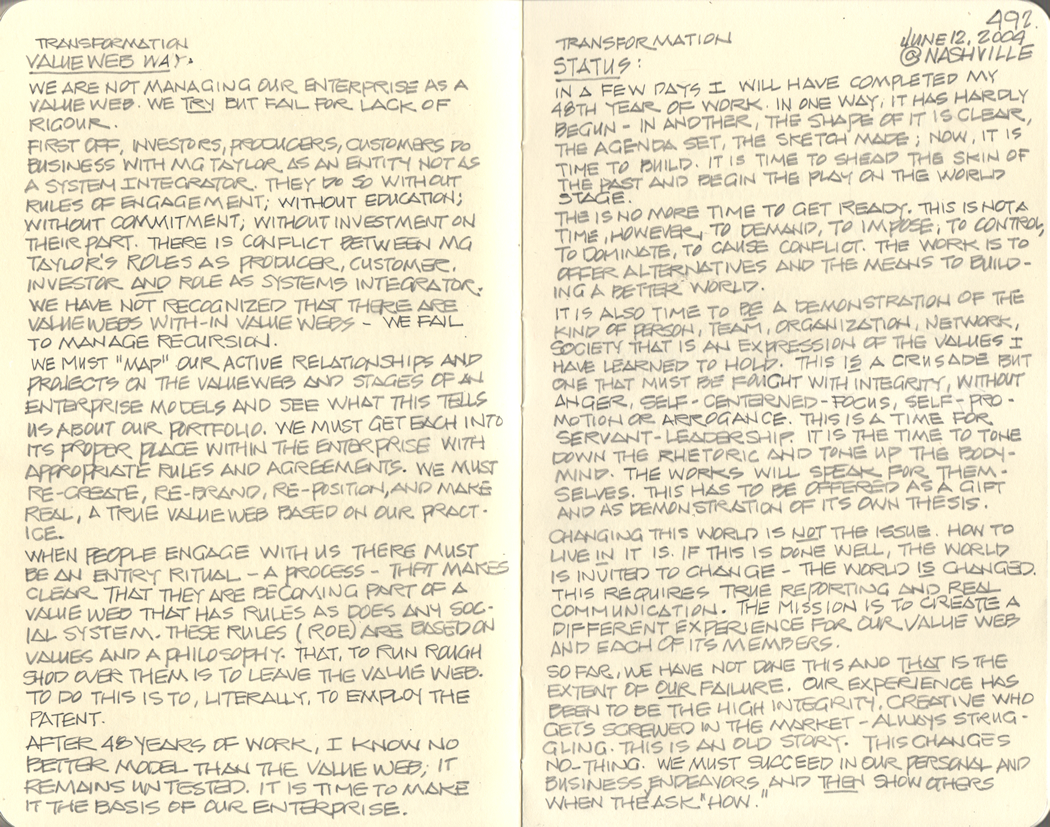 TRANSFORMATION
VALUE WEB WAY.
WE ARE NOT MANAGING OUR ENTERPRISE AS A
VALUE WEB. WE TRY BUT FAIL FOR LACK OF
RIGOUR.
FIRST OFF, INVESTORS, PRODUCERS, CUSTOMERS DO
BUSINESS WITH MG TAYLOR AS AN ENTITY NOT AS
A SYSTEM INTEGRATOR. THEY DO SO WITHOUT
RULES OF ENGAGEMENT; WITHOUT EDUCATION;
WITHOUT COMMITMENT; WITHOUT INVESTMENT ON
THEIR PART. THERE IS CONFLICT BETWEEN MG
TAYLOR'S ROLES AS PRODUCER, CUSTOMER,
INVESTOR AND ROLE AS SYSTEMS INTEGRATOR.
WE HAVE NOT RECOGNIZED THAT THERE ARE
VALUE WEBS WITH-IN VALUE WEBS - WE FAIL
TO MANAGE RECURSION.
WE MUST "MAP" OUR ACTIVE RELATIONSHIPS AND
PROJECTS ON THE VALUE WEB AND STAGES OF AN
ENTERPRISE MODELS AND SEE WHAT THIS TELLS
US ABOUT OUR PORTFOLIO. WE MUST GET EACH INTO
ITS PROPER PLACE WITHIN THE ENTERPRISE WITH
APPROPRIATE RULES AND AGREEMENTS. WE MUST
RE-CREATE, RE-BRAND, RE-POSITION, AND MAKE
REAL, A TRUE VALUE WEB BASED ON OUR PRACT-
ICE.
WHEN PEOPLE ENGAGE WITH US THERE MUST
BE AN ENTRY RITUAL - A PROCESS - THAT MAKES
CLEAR THAT THEY ARE BECOMING PART OF A
VALUE WEB THAT HAS RULES AS DOES ANY SOC-
IAL SYSTEM. THESE RULES (ROE) ARE BASED ON
VALUES AND A PHILOSOPHY. THAT, TO RUN ROUGH
SHOD OVER THEM IS TO LEAVE THE VALUE WEB.
TO DO THIS IS TO, LITERALLY, TO EMPLOY THE
PATENT.
AFTER 48 YEARS OF WORK, I KNOW NO
BETTER MODEL THAN THE VALUE WEB; IT
REMAINS UNTESTED. IT IS TIME TO MAKE
IT THE BASIS OF OUR ENTERPRISE.
492.
JUNE 12, 2004
@ NASHVILLE
TRANSFORMATION
STATUS:
IN A FEW DAYS I WILL HAVE COMPLETED MY
48TH YEAR OF WORK. IN ONE WAY, IT HAS HARDLY
BEGUN - IN ANOTHER, THE SHAPE OF IT IS CLEAR,
THE AGENDA SET, THE SKETCH MADE; NOW, IT IS
TIME TO BUILD. IT IS TIME TO SHEAD THE SKIN OF
THE PAST AND BEGIN THE PLAY ON THE WORLD
STAGE.
THE IS NO MORE TIME TO GET READY. THIS IS NOT A
TIME, HOWEVER, TO DEMAND, TO IMPOSE, TO CONTROL,
TO DOMINATE, TO CAUSE CONFLICT. THE WORK IS TO
OFFER ALTERNATIVES AND THE MEANS TO BUILD-
ING A BETTER WORLD.
IT IS ALSO TIME TO BE A DEMONSTRATION OF THE
KIND OF PERSON, TEAM, ORGANIZATION, NETWORK,
SOCIETY THAT IS AN EXPRESSION OF THE VALUES I
HAVE LEARNED TO HOLD. THIS IS A CRUSADE BUT
ONE THAT MUST BE FOUGHT WITH INTEGRITY, WITHOUT
ANGER, SELF-CENTERNED-FOCUS, SELF-PRO-
MOTION OR ARROGANCE. THIS IS A TIME FOR
SERVANT-LEADERSHIP. IT IS THE TIME TO TONE
DOWN THE RHETORIC AND TONE UP THE BODY-
MIND. THE WORKS WILL SPEAK FOR THEM-
SELVES. THIS HAS TO BE OFFERED AS A GIFT
AND AS DEMONSTRATION OF ITS OWN THESIS.
CHANGING THIS WORLD IS NOT THE ISSUE. HOW TO
LIVE IN IT IS. IF THIS IS DONE WELL, THE WORLD
IS INVITED TO CHANGE - THE WORLD IS CHANGED.
THIS REQUIRES TRUE REPORTING AND REAL
COMMUNICATION. THE MISSION IS TO CREATE A
DIFFERENT EXPERIENCE FOR OUR VALUE WEB
AND EACH OF ITS MEMBERS.
SO FAR, WE HAVE NOT DONE THIS AND THAT IS THE
EXTENT OF OUR FAILURE. OUR EXPERIENCE HAS
BEEN TO BE THE HIGH INTEGRITY, CREATIVE WHO
GETS SCREWED IN THE MARKET - ALWAYS STRUG-
GLING. THIS IS AN OLD STORY. THIS CHANGES
NO-THING. WE MUST SUCCEED IN OUR PERSONAL AND
BUSINESS ENDEAVORS AND THEN SHOW OTHERS
WHEN THE ASK "HOW."